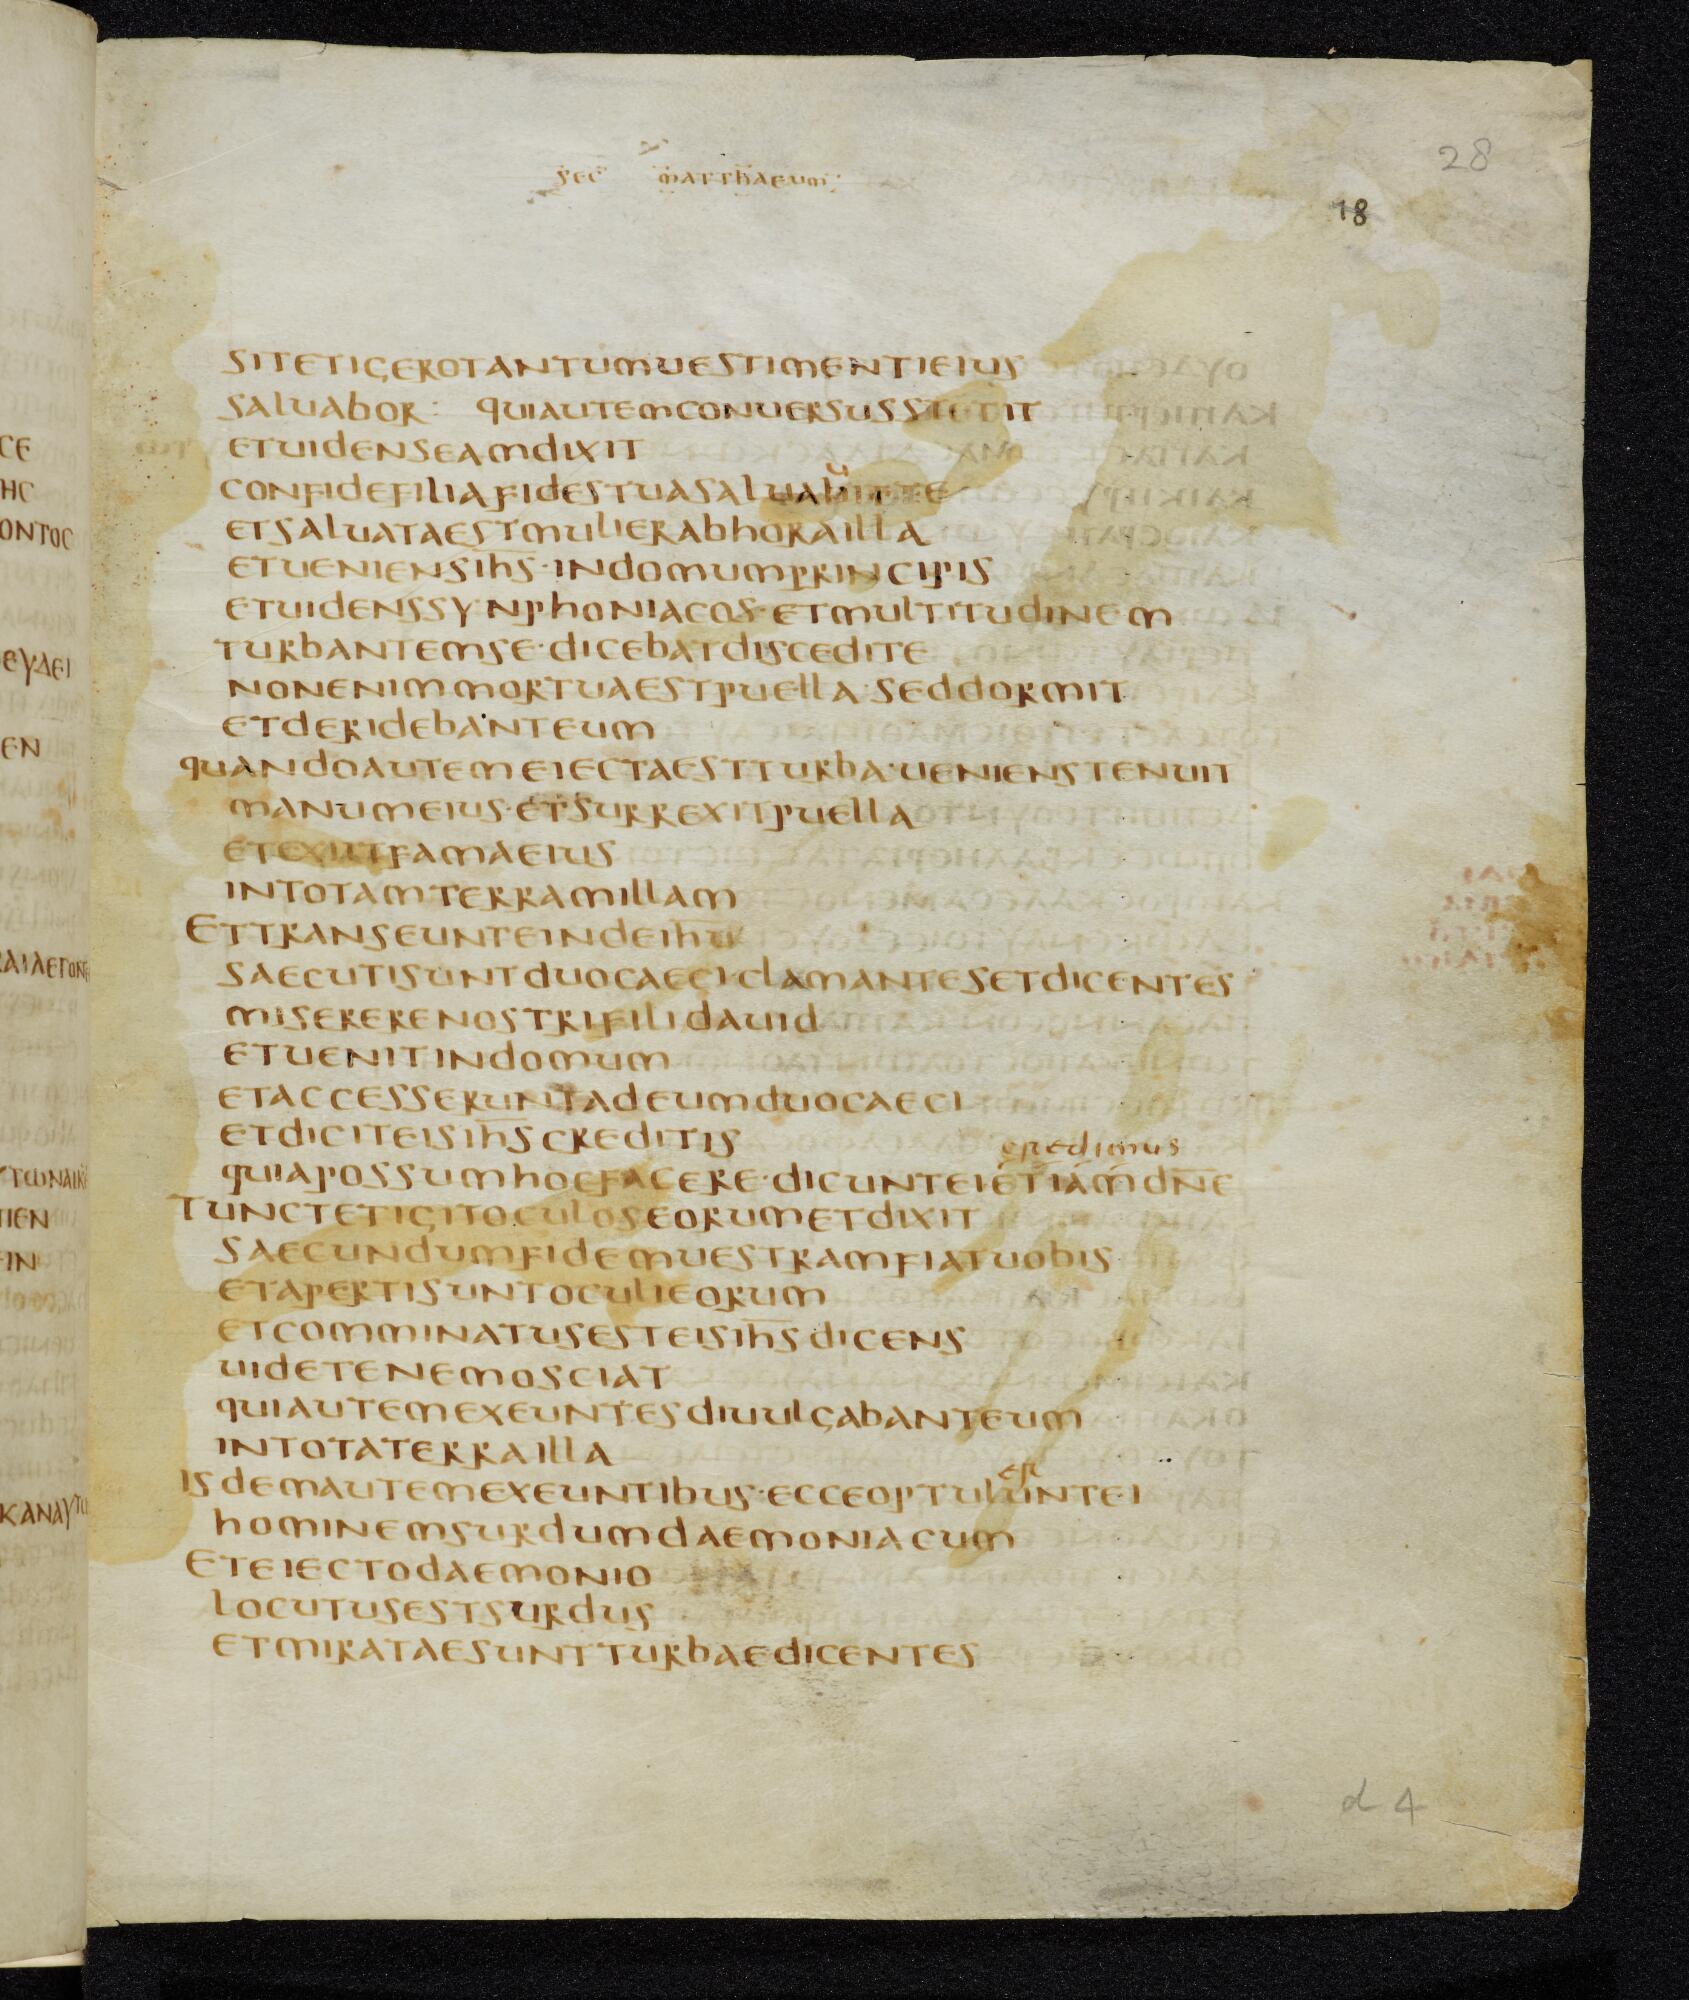 SEC MATTHAEUM
28
18
SITETIGEROTANTUMUESTIMENTIEIUS
SALUABOR: QUIAUTEMCONUERSUSSTETIT
ETUIDENSEAMDIXIT
CONFIDEFILIAFIDESTUASALUABITTE
ETSALUATAESTMULIERABHORAILLA
ETUENIENSIH̅S̅·INDOMUMPRINCIPIS
ETUIDENSSYNPHONIACOS·ETMULTITUDINEM
TURBANTEMSE·DICEBATDISCEDITE
NONENIMMORTUAESTPUELLA·SEDDORMIT
ETDERIDEBANTEUM
QUANDOAUTEMEIECTAESTTURBA·UENIENSTENUIT
MANUMEIUS·ETSURREXITPUELLA
ETEXIITFAMAEIUS
INTOTAMTERRAMILLAM
ETTRANSEUNTEINDEIH̅U̅
SAECUTISUNTDUOCAECICLAMANTESETDICENTES
MISERERENOSTRIFILIDAUID
ETUENITINDOMUM
ETACCESSERUNTADEUMDUOCAECI
ETDICITEISIH̅S̅CREDITIS
credimus
QUIAPOSSUMHOCFACERE·DICUNTEIETIAMDN̅E̅
TUNCTETIGITOCULOSEORUMETDIXIT
SAECUNDUMFIDEMUESTRAMFIATUOBIS
ETAPERTISUNTOCULIEORUM
ETCOMMINATUSESTEISIH̅S̅DICENS
UIDETENEMOSCIAT
QUIAUTEMEXEUNTESDIUULGABANTEUM
INTOTATERRAILLA
ER
ISDEMAUTEMEXEUNTIBUS·ECCEOPTULUNTEI
HOMINEMSURDUMDAEMONIACUM
ETEIECTODAEMONIO
LOCUTUSESTSURDUS
ETMIRATAESUNTTURBAEDICENTES
d 4